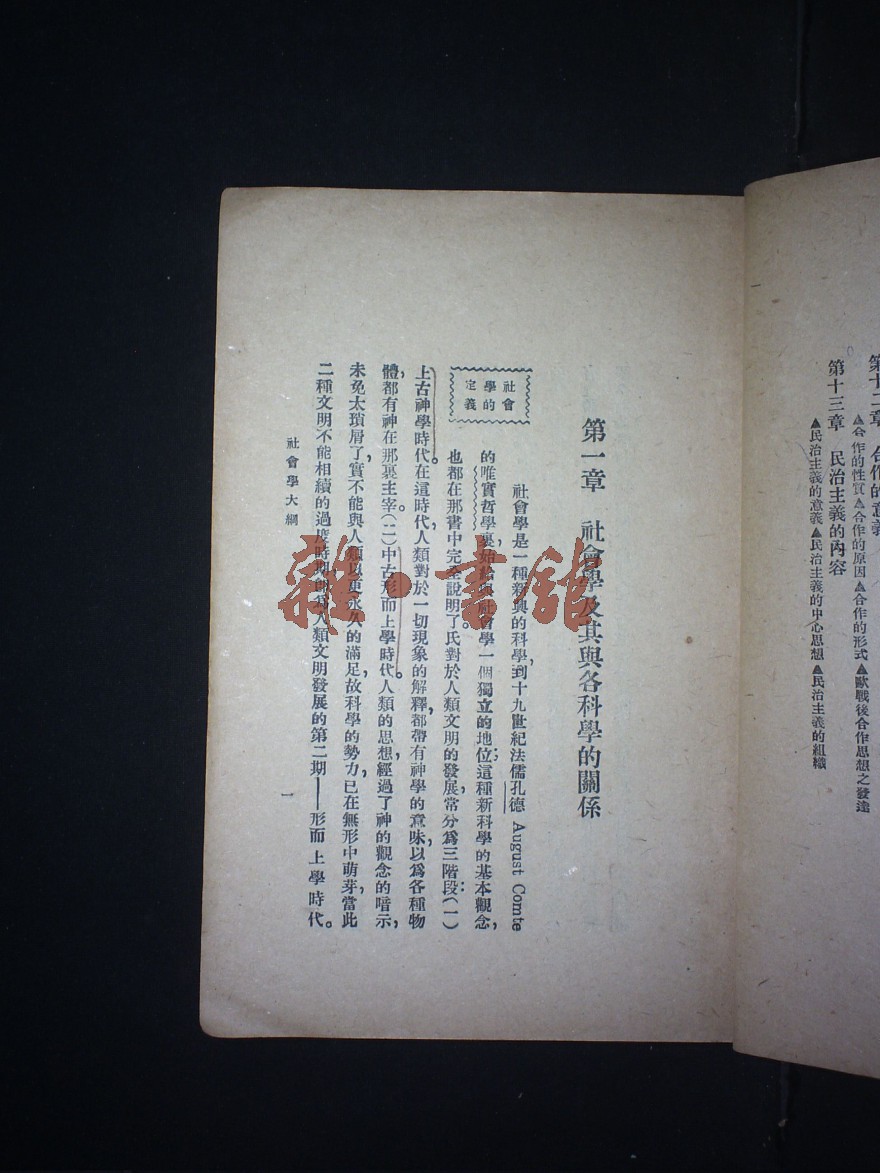 第十二章 合作的意義
▲合作的性質▲合作的原因▲合作的形式▲歐戰後合作思想之發達
第十三章 民治主義的內容
▲民治主義的意義▲民治主義的中心思想▲民治主義的組織
第一章 社會學及其與各科學的關係
社會
學的
定義
社會學是一種新興的科學,到十九世紀法儒孔德 August Comte
的唯實哲學裏,始給與社會學一個獨立的地位;這種新科學的基本觀念,
也都在那書中完全說明了。氏對於人類文明的發展,常分爲三階段:(一)
上古神學時代。在這時代,人類對於一切現象的解釋都帶有神學的意味,以爲各種物
體,都有神在那裏主宰。(二)中古形而上學時代。人類的思想,經過了神的觀念的暗示,
未免太瑣屑了,實不能與人類以更永久的滿足,故科學的勢力,已在無形中萌芽,當此
二種文明不能相續的過度時期,卽爲人類文明發展的第二期——形而上學時代。
社會學大綱
一
雜·書館